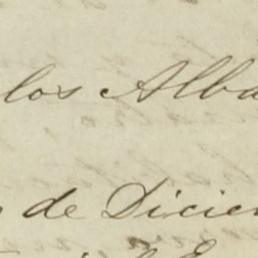 los Alba
de Dicien